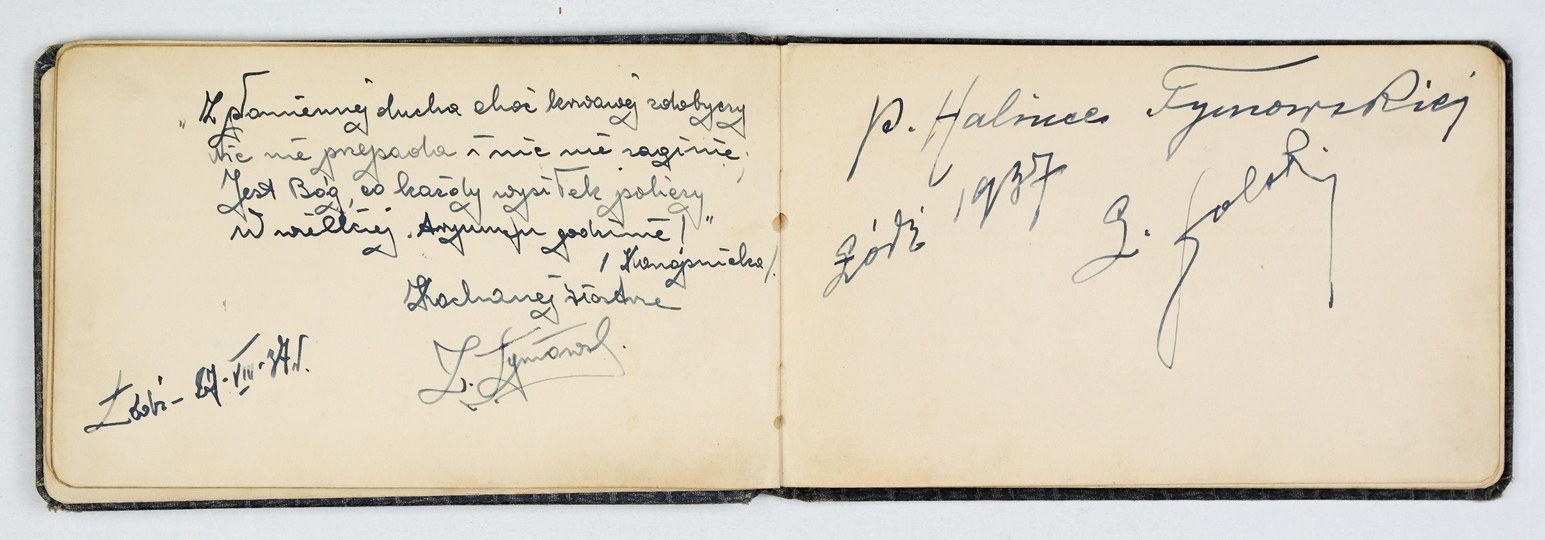 „Z płomiennej ducha choć krwawej zdobyczy
Nic nie przepada i nic nie zaginie;
Jest Bóg, co każdy wysiłek policzy
W wielkiej. Tryumfu godzinie!"
/Konopnicka/.
Kochanej Siostrze
Z. Tymowsk.
Łódź - 27-VIII-37 r.
P. Halince Tymowskiej
Łódź 1937
G.